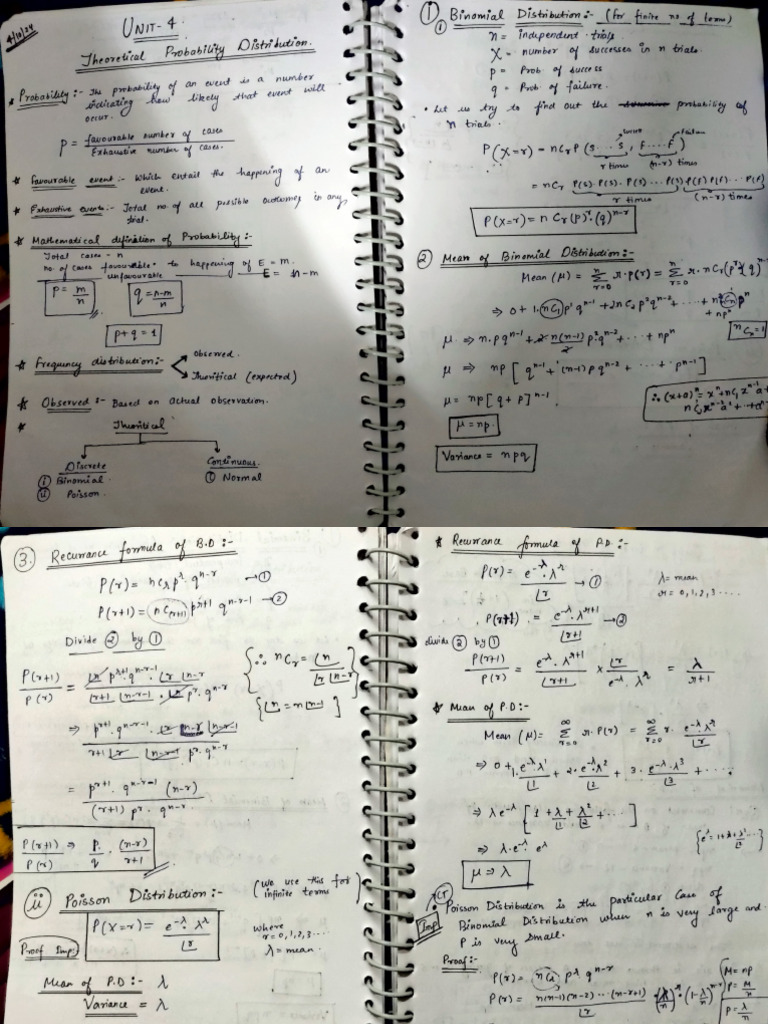 4/11/24
UNIT-4
Theoretical Probability Distribution.
* Probability:- The probability of an event is a number
indicating how likely that event will
occur.
P = favourable number of cases / Exhaustive number of cases.
* Favourable event:- Which entail the happening of an
event.
* Exhaustive events:- Total no. of all possible outcomes in any
trial.
* Mathematical defination of Probability:-
Total cases - n
no. of cases favourable to happening of E = m.
unfavourable E = n-m
P = m/n q = n-m/n
p+q=1
* Frequency distribution:- Observed.
Theoritical (expected)
* Observed :- Based on Actual observation.
* Theoritical
Discrete Continuous.
(i) Binomial (i) Normal
(ii) Poisson.
(i) Binomial Distribution:- (for finite no. of terms)
n = independent trials
X = number of successes in n trials.
p = Prob. of success
q = Prob. of failure.
• Let us try to find out the probability of
n trials.
P(X=r) = nCr P(s.....s, f.....f)
r times (n-r) times
= nCr P(s). P(s). P(s)... P(s) P(f) P(f)... P(f)
r times (n-r) times
P(X=r) = nCr (p)^r. (q)^n-r
(2) Mean of Binomial Distribution:-
Mean (μ) = Σ r=0 n r. P(r) = Σ r=0 n r. nCr (p^r)(q)^n-r
⇒ 0 + 1. nC1 p^1 q^n-1 + 2nC2 p^2 q^n-2 + ....
+ np^n
nCn=1
μ ⇒ n. p q^n-1 + 2 n(n-1)/2 p^2. q^n-2 + ... + np^n
μ ⇒ np [q^n-1 + (n-1) p q^n-2 + ... p^n-1]
μ = np [q + p]^n-1
∴ (x+a)^n = x^n + nC1 x^n-1 a +
nC2 x^n-2 a^2 + ... + a^n
μ = np.
Variance = npq
(3.) Recurrance formula of B.D:-
P(r) = nCr p^r. q^n-r → (1)
P(r+1) = nC(r+1) p^r+1 q^n-r-1 → (2)
Divide (2) by (1)
P(r+1)/P(r) = |n p^r+1. q^n-r-1. |r |n-r / |r+1 |n-r-1. |n p^r. q^n-r
{∴ nCr = |n / |r |n-r}
{|n = n|n-1]
⇒ p^r+1. q^n-r-1. |r n-r |n-r-1 / r+1 |r |n-r-1 p^r. q^n-r
= p^r+1. q^n-r-1 (n-r) / (r+1) p^r. q^n-r
P(r+1)/P(r) ⇒ p/q . (n-r)/r+1
(ii) Poisson Distribution:- (We use this for
infinite terms)
P(X=r) = e^-λ. λ^r / |r
Where
r=0,1,2,3...
λ = mean.
Proof Imp:
Mean of P.D:- λ
Variance = λ
* Recurrance formula of P.D:-
P(r) = e^-λ. λ^r / |r → (1)
λ = mean
r = 0,1,2,3....
P(r+1) = e^-λ. λ^r+1 / |r+1 → (2)
divide (2) by (1)
P(r+1)/P(r) = e^-λ. λ^r+1 / |r+1 × |r / e^-λ. λ^r = λ / r+1
* Mean of P.D:-
Mean (μ) = Σ r=0 ∞ r. P(r) = Σ r=0 ∞ r. e^-λ. λ^r / |r
⇒ 0 + 1. e^-λ λ^1 / |1 + 2. e^-λ. λ^2 / |2 + 3. e^-λ. λ^3 / |3 + ....
⇒ λ e^-λ [1 + λ/|1 + λ^2/|2 + ...]
⇒ λ. e^-λ e^λ
μ ⇒ λ
CT
Imp
Poisson Distribution is the particular Case of
Binomial Distribution when n is very large and
P is very small.
Proof:-
P(r) = nCr p^r q^n-r
P(r) = n(n-1)(n-2)...(n-r+1) / |r . (λ/n)^r. (1-λ/n)^n-r
M = np
P = M/n
P = λ/n